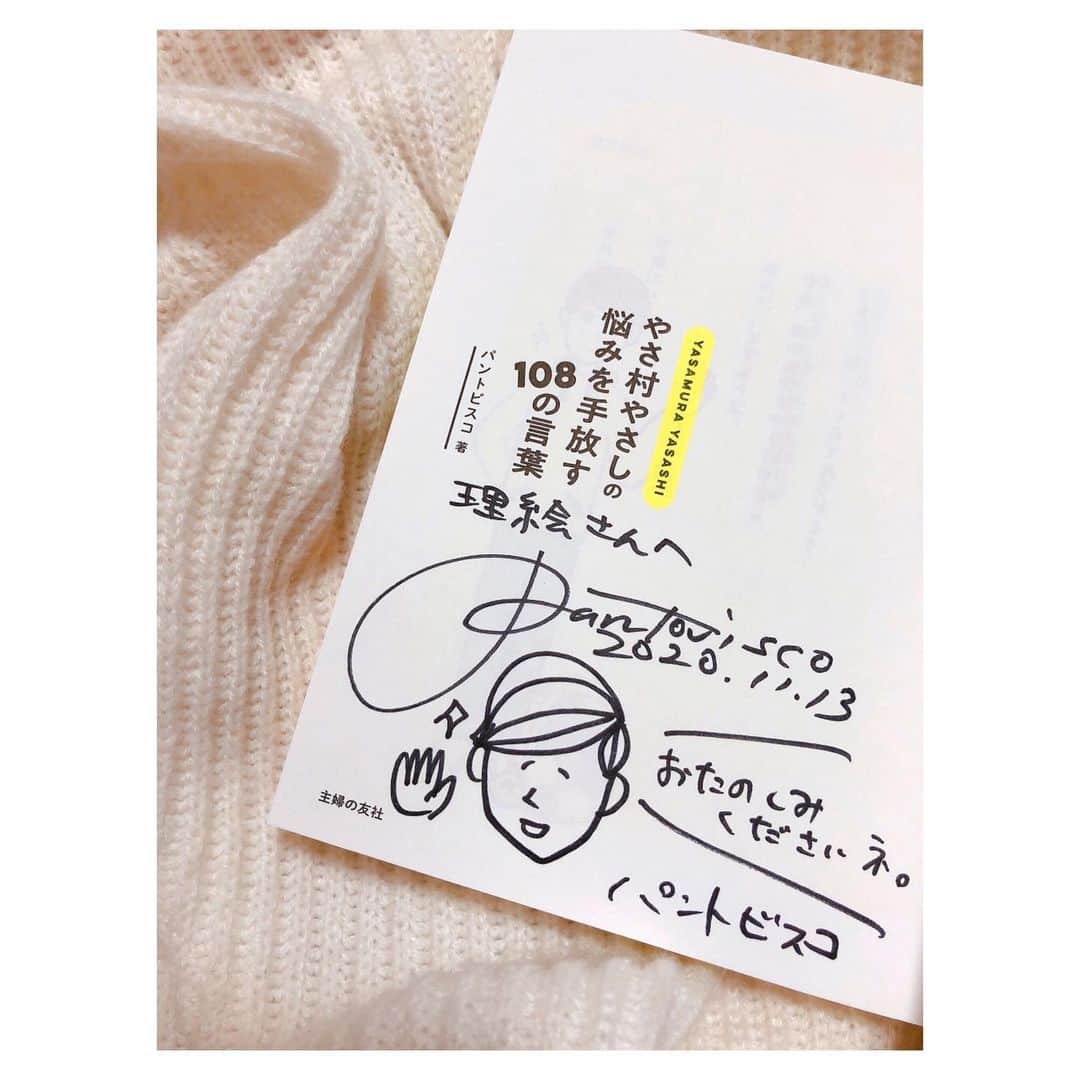 YASAMURA YASASHI
やさ村やさしの
悩みを手放す
108の言葉
パントビスコ 著
理絵さんへ
Pantovisco
2020.11.13
おたのしみ
くださいネ。
パントビスコ
主婦の友社